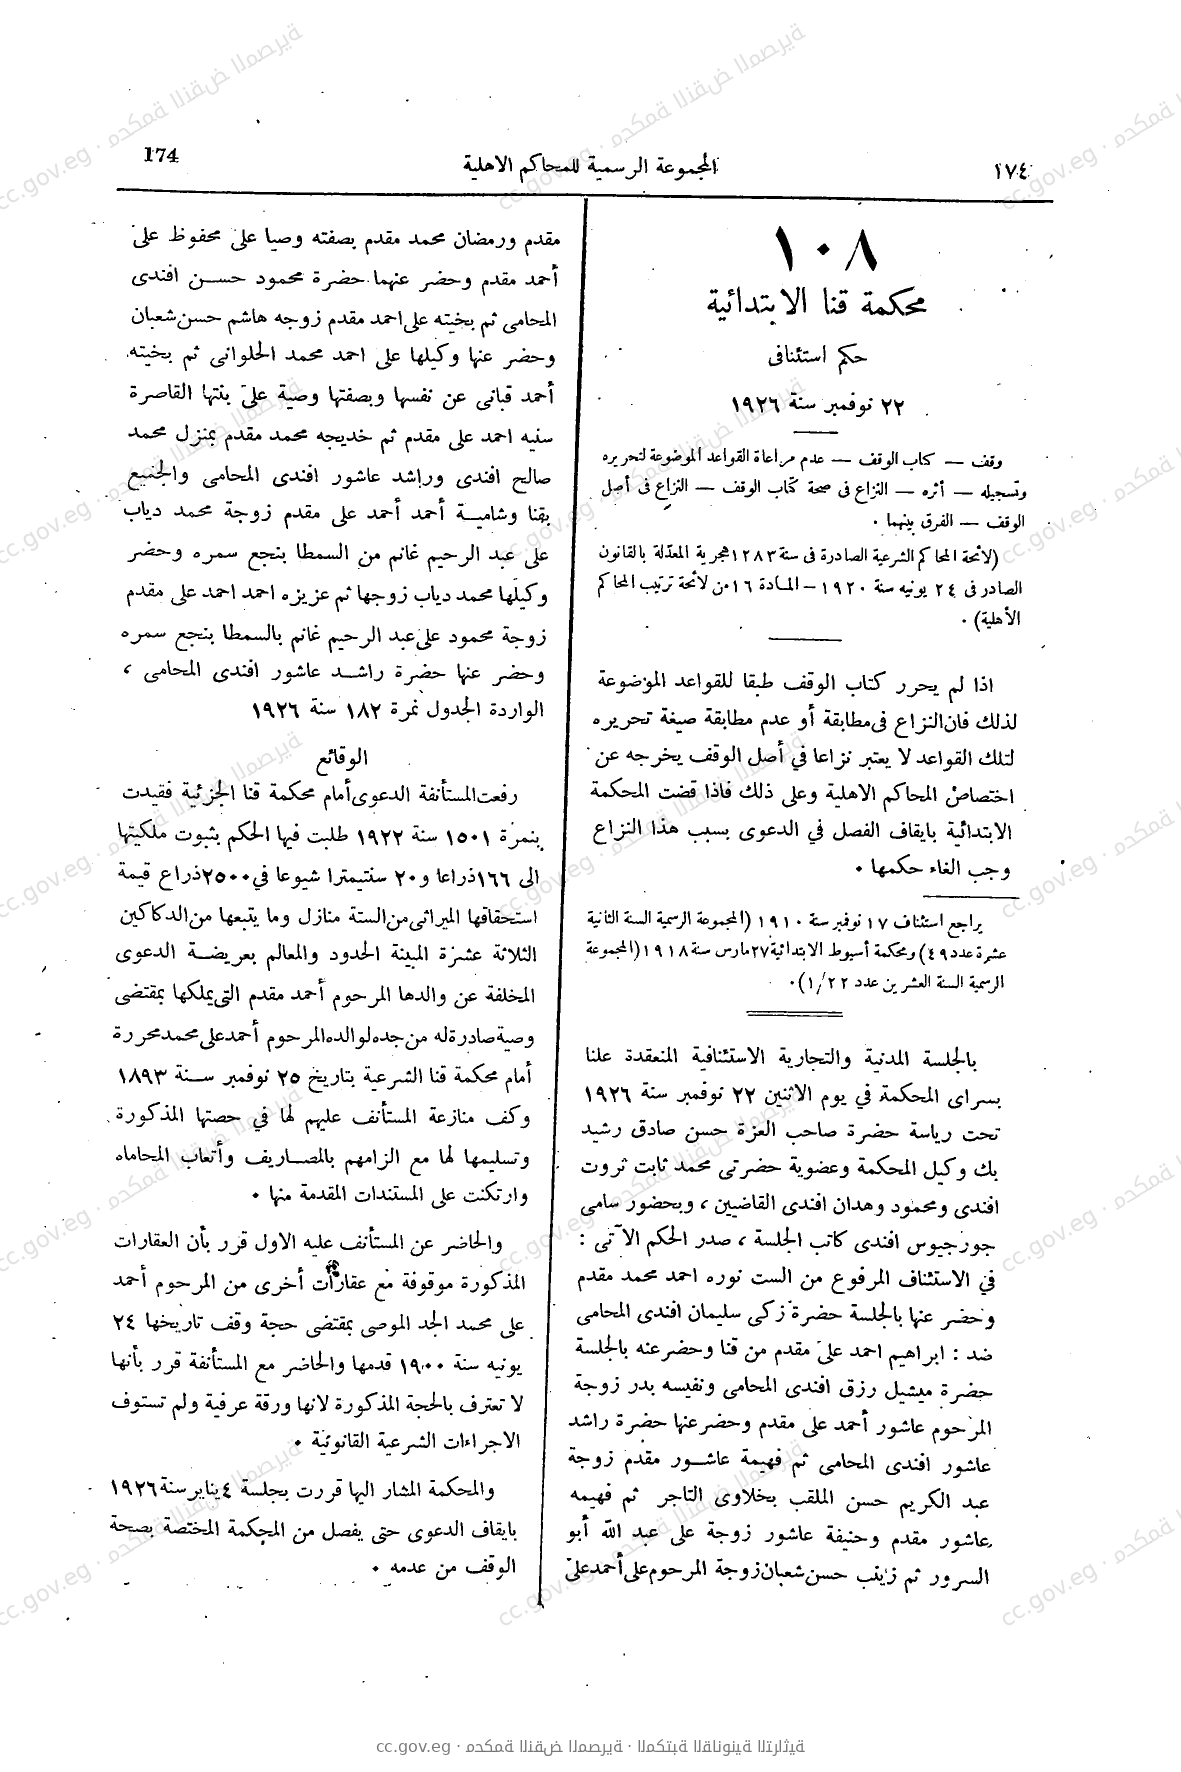 ١٧٤
المجموعة الرسمية للمحاكم الاهلية
174
١٠٨
محكمة قنا الابتدائية
حكم استئنافى
٢٢ نوفمبر سنة ١٩٢٦
وقف — كتاب الوقف — عدم مراعاة القواعد الموضوعة لتحريره
وتسجيله — أثره — النزاع فى صحة كتاب الوقف — النزاع فى أصل
الوقف — الفرق بينهما ٠
(لائحة المحاكم الشرعية الصادرة فى سنة ١٢٨٣ هجرية المعدّلة بالقانون
الصادر فى ٢٤ يونيه سنة ١٩٢٠ – المادة ١٦ من لائحة ترتيب المحاكم
الأهلية) ٠
اذا لم يحرر كتاب الوقف طبقا للقواعد الموضوعة
لذلك فان النزاع فى مطابقة أو عدم مطابقة صيغة تحريره
لتلك القواعد لا يعتبر نزاعا في أصل الوقف يخرجه عن
اختصاص المحاكم الاهلية وعلى ذلك فاذا قضت المحكمة
الابتدائية بايقاف الفصل في الدعوى بسبب هذا النزاع
وجب الغاء حكمها ٠
يراجع استئناف ١٧ نوفمبر سنة ١٩١٠ (المجموعة الرسمية السنة الثانية
عشرة عدد ٤٩) ومحكمة أسيوط الابتدائية ٢٧ مارس سنة ١٩١٨ (المجموعة
الرسمية السنة العشرين عدد ١/٢٢) ٠
بالجلسة المدنية والتجارية الاستئنافية المنعقدة علنا
بسراى المحكمة في يوم الاثنين ٢٢ نوفمبر سنة ١٩٢٦
تحت رياسة حضرة صاحب العزة حسن صادق رشيد
بك وكيل المحكمة وعضوية حضرتى محمد ثابت ثروت
افندى ومحمود وهدان افندى القاضيين ، وبحضور سامى
جورجيوس افندى كاتب الجلسة ، صدر الحكم الآتى :
في الاستئناف المرفوع من الست نوره احمد محمد مقدم
وحضر عنها بالجلسة حضرة زكى سليمان افندى المحامى
ضد : ابراهيم احمد على مقدم من قنا وحضر عنه بالجلسة
حضرة ميشيل رزق افندى المحامى ونفيسه بدر زوجة
المرحوم عاشور أحمد على مقدم وحضر عنها حضرة راشد
عاشور افندى المحامى ثم فهيمة عاشور مقدم زوجة
عبد الكريم حسن الملقب بخلاوى التاجر ثم فهيمه
عاشور مقدم وحنيفة عاشور زوجة على عبد الله أبو
السرور ثم زينب حسن شعبان زوجة المرحوم على أحمد على
مقدم ورمضان محمد مقدم بصفته وصيا على محفوظ على
أحمد مقدم وحضر عنهما حضرة محمود حسن افندى
المحامى ثم بخيته على احمد مقدم زوجه هاشم حسن شعبان
وحضر عنها وكيلها على احمد محمد الحلوانى ثم بخيته
أحمد قبانى عن نفسها وبصفتها وصية على بنتها القاصرة
سنيه احمد على مقدم ثم خديجه محمد مقدم بمنزل محمد
صالح افندى وراشد عاشور افندى المحامى والجميع
بقنا وشامية أحمد أحمد على مقدم زوجة محمد دياب
على عبد الرحيم غانم من السمطا بنجع سمره وحضر
وكيلها محمد دياب زوجها ثم عزيزه احمد احمد على مقدم
زوجة محمود على عبد الرحيم غانم بالسمطا بنجع سمره
وحضر عنها حضرة راشد عاشور افندى المحامى ،
الواردة الجدول نمرة ١٨٢ سنة ١٩٢٦
الوقائع
رفعت المستأنفة الدعوى أمام محكمة قنا الجزئية فقيدت
بنمرة ١٥٠١ سنة ١٩٢٢ طلبت فيها الحكم بثبوت ملكيتها
الى ١٦٦ ذراعا و٢٠ سنتيمترا شيوعا في ٢٥٠٠ ذراع قيمة
استحقاقها الميراثى من الستة منازل وما يتبعها من الدكاكين
الثلاثة عشرة المبينة الحدود والمعالم بعريضة الدعوى
المخلفة عن والدها المرحوم أحمد مقدم التى يملكها بمقتضى
وصية صادرة له من جده لوالده المرحوم أحمد على محمد محررة
أمام محكمة قنا الشرعية بتاريخ ٢٥ نوفمبر سنة ١٨٩٣
وكف منازعة المستأنف عليهم لها في حصتها المذكورة
وتسليمها لها مع الزامهم بالمصاريف وأتعاب المحاماه
وارتكنت على المستندات المقدمة منها ٠
والحاضر عن المستأنف عليه الاول قرر بأن العقارات
المذكورة موقوفة مع عقارات أخرى من المرحوم أحمد
على محمد الجد الموصى بمقتضى حجة وقف تاريخها ٢٤
يونيه سنة ١٩٠٠ قدمها والحاضر مع المستأنفة قرر بأنها
لا تعترف بالحجة المذكورة لانها ورقة عرفية ولم تستوف
الاجراءات الشرعية القانونية ٠
والمحكمة المشار اليها قررت بجلسة ٤ يناير سنة ١٩٢٦
بايقاف الدعوى حتى يفصل من المحكمة المختصة بصحة
الوقف من عدمه ٠
cc.gov.eg · محكمة النقض المصرية · المكتبة القانونية التراثية